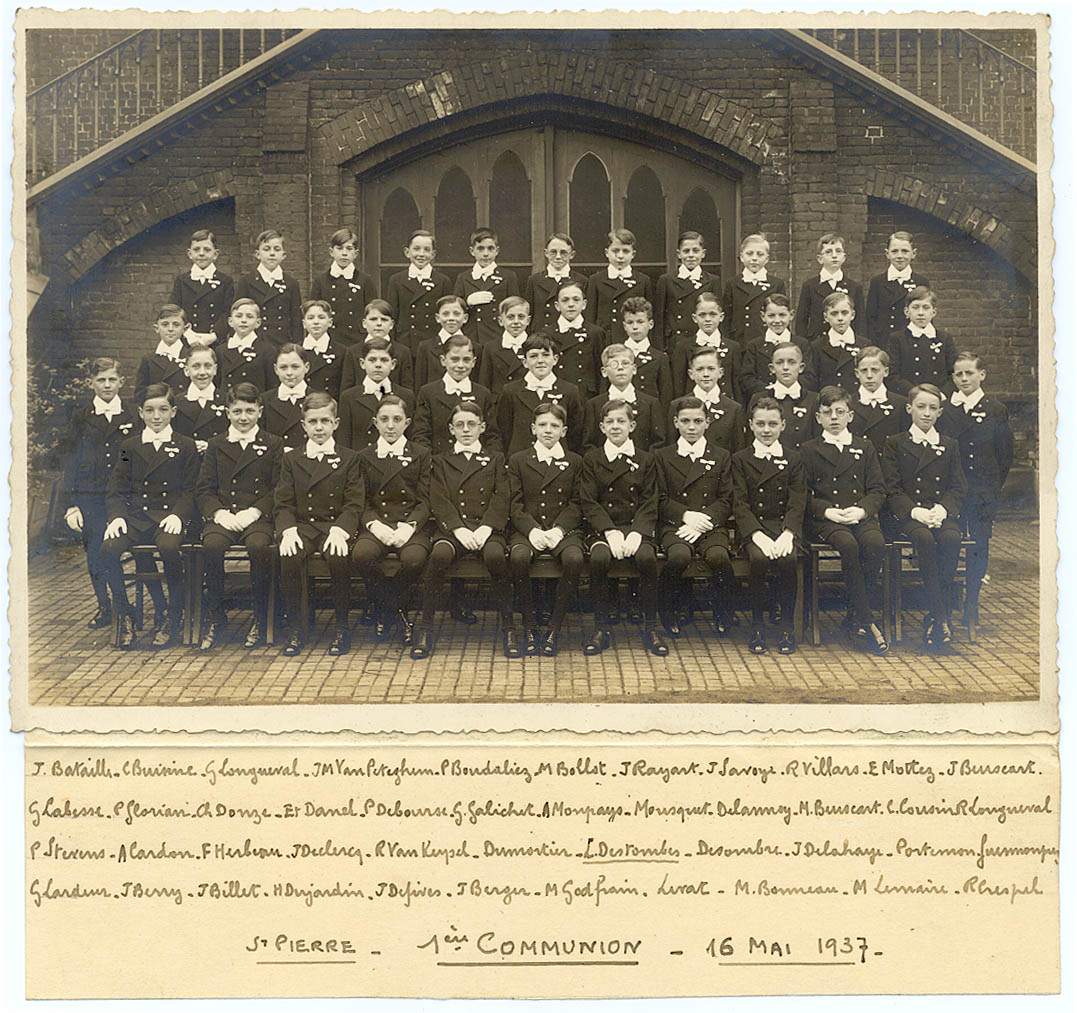 J. Bataille - C Buisine - G Longueval - JM Van Peteghem - P Boudaliez - M Bollot - J Rayart - J Savoye - R Villars - E Mottez - J Beuscart.
G Labesse - P Florian - Ch Donze - Et Danel - P Debourse - G. Galichet - A Monpays - Mousquet - Delannoy - M. Beuscart - C. Cousin R Longueval
P Stevens - A Cardon - F Herbeau - J Declercq - R Van Keupel - Dumortier - L. Destombes - Desombre - J Delahaye - Portemon
G Lardeur - J Berry - J Billet - H Dujardin - J Defives - J Berger - M Godfrain - Livat - M. Bonneau - M Lemaire - R Crespel
ST PIERRE - 1ère COMMUNION - 16 MAI 1937 -